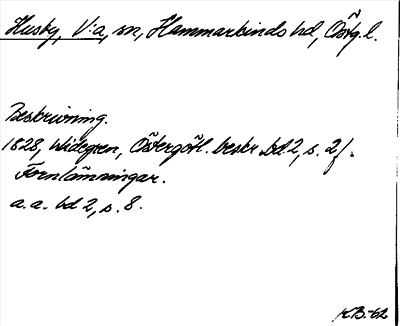 Husby, V:a, sn, Hammarkinds hd, Östg. l.
Beskrivning.
1828, Widegren, Östergötl. beskr. bd 2, s. 2f.
Fornlämningar.
a.a. bd 2, s. 8.
KB-62